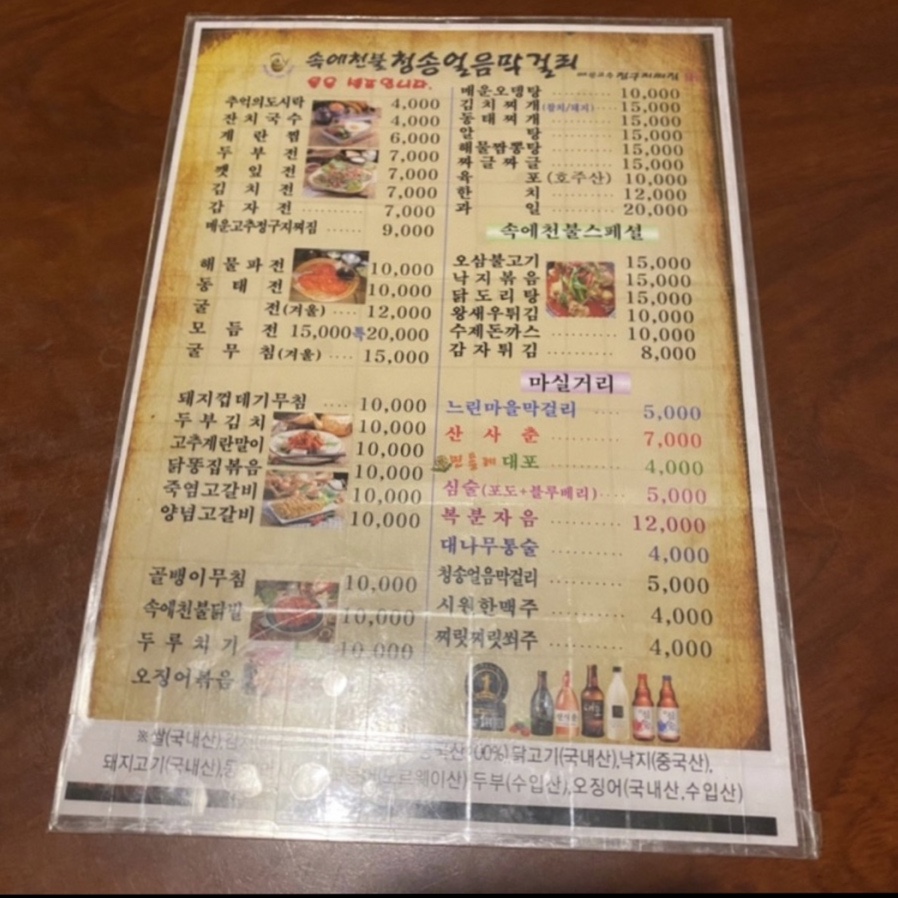 속에천불 청송얼음막걸리
추억의도시락 4,000
잔치국수 4,000
계란찜 6,000
두부전 7,000
깻잎전 7,000
김치전 7,000
감자전 ........ 7,000
매운고추정구지찌짐 .... 9,000
해물파전 10,000
동태전 10,000
굴전(겨울) .... 12,000
모듬전 15,000특20,000
굴무침(겨울) .... 15,000
돼지껍데기무침 .... 10,000
두부김치 10,000
고추계란말이 10,000
닭똥집볶음 10,000
죽염고갈비 10,000
양념고갈비 10,000
골뱅이무침 10,000
속에천불닭발 10,000
두루치기 10,000
오징어볶음
매운오뎅탕 ........ 10,000
김치찌개(참치/돼지) .... 15,000
동태찌개 ........ 15,000
알탕 ........ 15,000
해물짬뽕탕 ........ 15,000
짜글짜글 ........ 15,000
육포(호주산) 10,000
한치 ........ 12,000
과일 ........ 20,000
속에천불스페셜
오삼불고기 15,000
낙지볶음 15,000
닭도리탕 15,000
왕새우튀김 10,000
수제돈까스 ........ 10,000
감자튀김 ........ 8,000
마실거리
느린마을막걸리 .... 5,000
산사춘 ........ 7,000
대포 ........ 4,000
심술(포도+블루베리).... 5,000
복분자음 ........ 12,000
대나무통술 ........ 4,000
청송얼음막걸리 ........ 5,000
시원한맥주 ........ 4,000
찌릿찌릿쐬주 ........ 4,000
※쌀(국내산), 닭고기(국내산),낙지(중국산),
돼지고기(국내산), (노르웨이산) 두부(수입산),오징어(국내산,수입산)